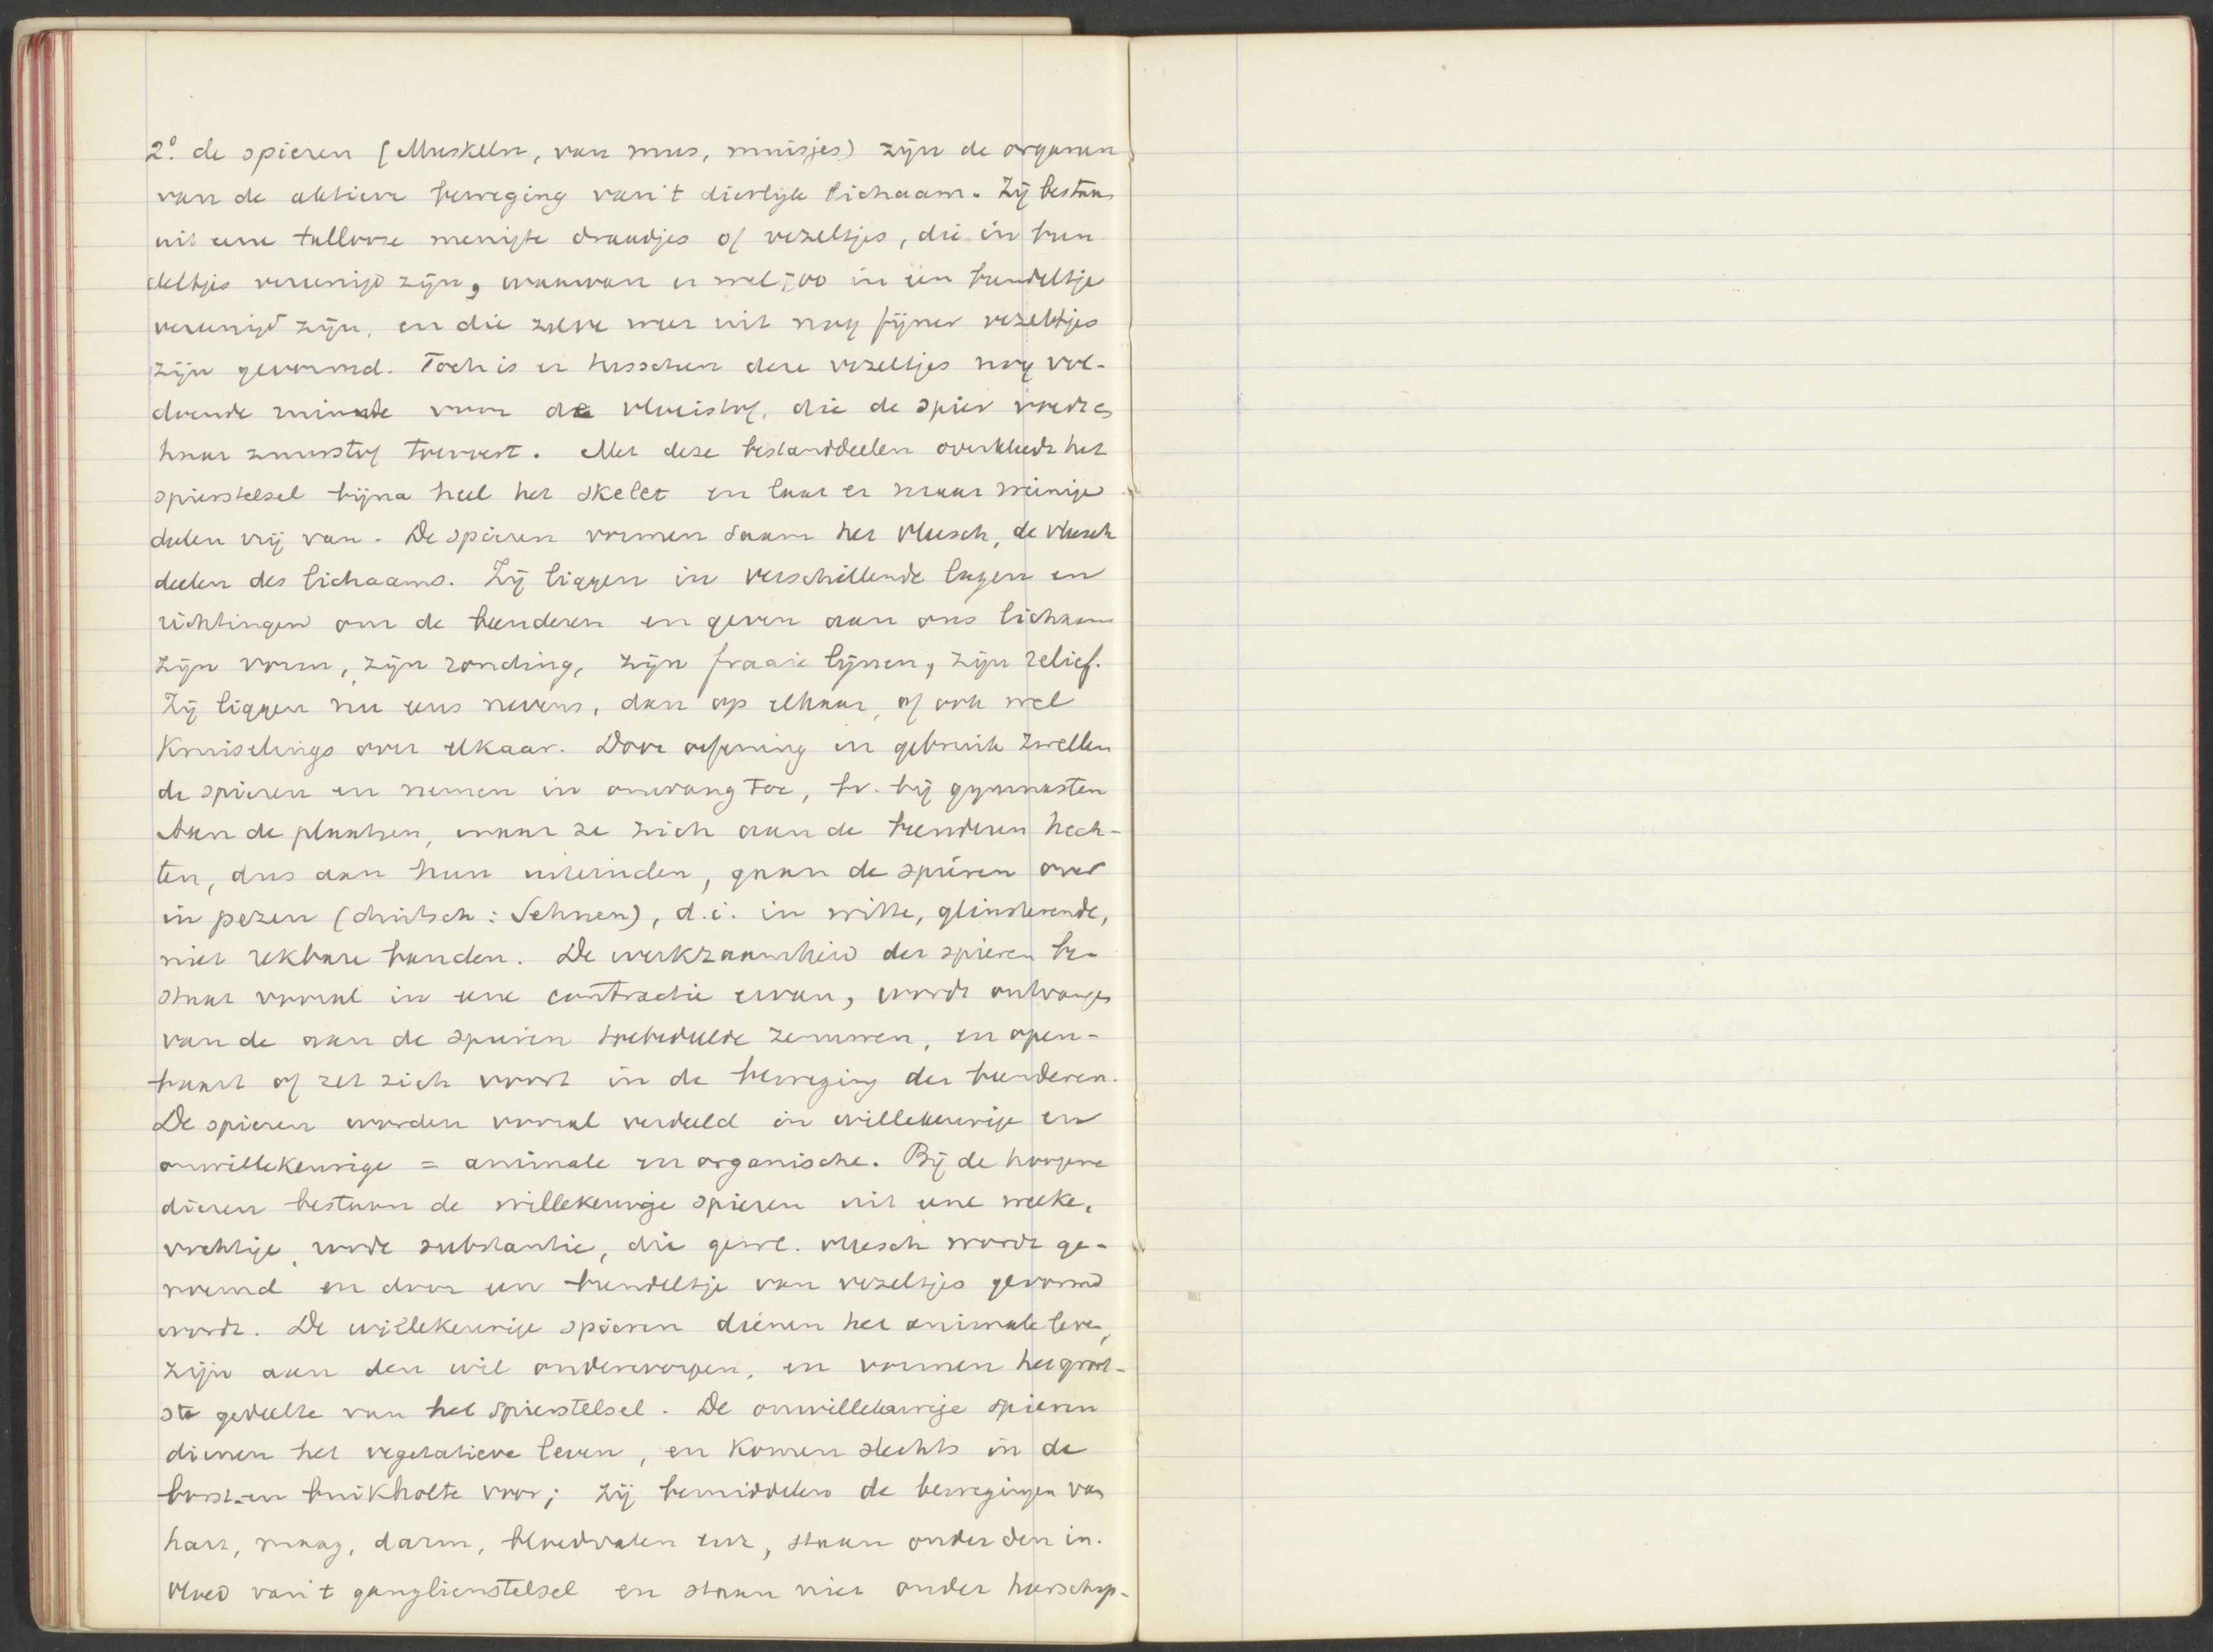 2º. de spieren (Muskeln, van mus, muisjes) zijn de organen
van de aktieve beweging van 't dierlijk lichaam. Zij bestaan
uit eene tallooze menigte draadjes of vezeltjes, die in bun-
deltjes vereenigd zijn, waarvan er wel 500 in een bundeltje
vereenigd zijn, en die zelve weer uit nog fijner vezeltjes
zijn gevormd. Toch is er tusschen deze vezeltjes nog vol-
doende ruimte voor de vloeistof, die de spier voedt en
haar zuurstof toevoert. Met deze bestanddeelen overkleedt het
spierstelsel bijna heel het skelet en laat er maar weinige
deelen vrij van. De spieren vormen saam het vleesch, de vleesch
deelen des lichaams. Zij liggen in verschillende lagen en
richtingen om de beenderen en geven aan ons lichaam
zijn vorm, zijn ronding, zijn fraaie lijnen, zijn relief.
Zij liggen nu eens nevens, dan op elkaar, of ook wel
kruiselings over elkaar. Door oefening en gebruik zwellen
de spieren en nemen in omvang toe, bv. bij gymnasten
Aan de plaatsen, waar ze zich aan de beenderen hech-
ten, dus aan hun uiteinden, gaan de spieren over
in pezen (duitsch: Sehnen), d.i. in witte, glinsterende,
niet rekbare banden. De werkzaamheid der spieren be-
staat vooral in eene contractie ervan, wordt ontvangen
van de aan de spieren toebedeelde zenuwen, en open-
baart of zet zich voort in de beweging der beenderen.
De spieren worden vooral verdeeld in willekeurige en
onwillekeurige = animale en organische. Bij de hoogere
dieren bestaan de willekeurige spieren uit eene weeke,
vochtige, roode substantie, die gewl. vleesch wordt ge-
noemd en door een bundeltje van vezeltjes gevormd
wordt. De willekeurige spieren dienen het animale leven,
zijn aan den wil onderworpen, en vormen het groot-
ste gedeelte van het spierstelsel. De onwillekeurige spieren
dienen het vegetatieve leven, en komen slechts in de
borst-en buikholte voor; zij bemiddelen de bewegingen van
hart, maag, darm, bloedvaten enz, staan onder den in-
vloed van 't gangliënstelsel en staan niet onder heerschap-